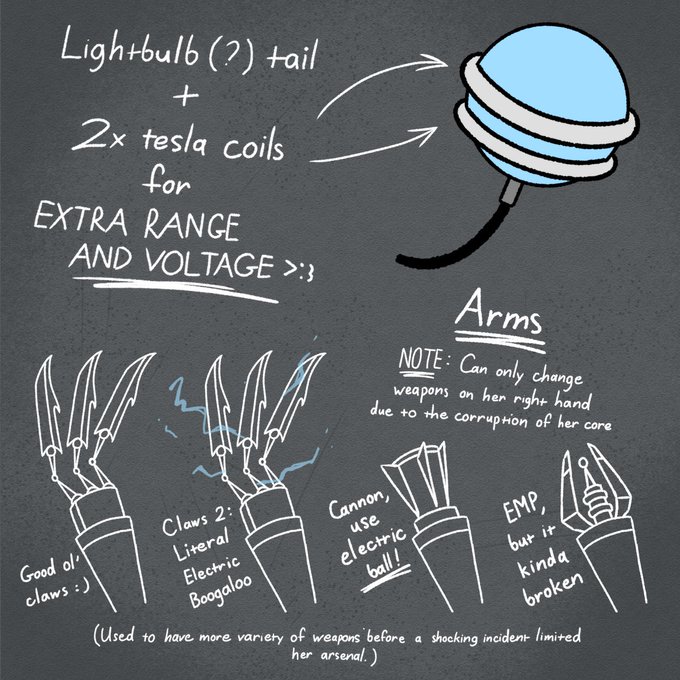 Lightbulb (?) tail
+
2x tesla coils
for
EXTRA RANGE
AND VOLTAGE >:3
Arms
NOTE: Can only change
weapons on her right hand
due to the corruption of her core
Good ol'
claws :)
Claws 2:
Literal
Electric
Boogaloo
Cannon,
use
electric
ball!
EMP,
but it
kinda
broken
(Used to have more variety of weapons before a shocking incident limited
her arsenal.)